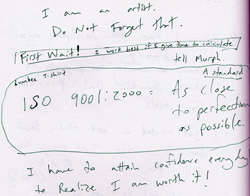 I am an artist.
Do Not Forget that.
First Wait! I work best if I give time to calculate
tell Murph.
T-shirt
A standard
ISO 9001:2000 = As close
to perfection
as possible.
I have to attain confidence everyday
to Realize I am worth it!